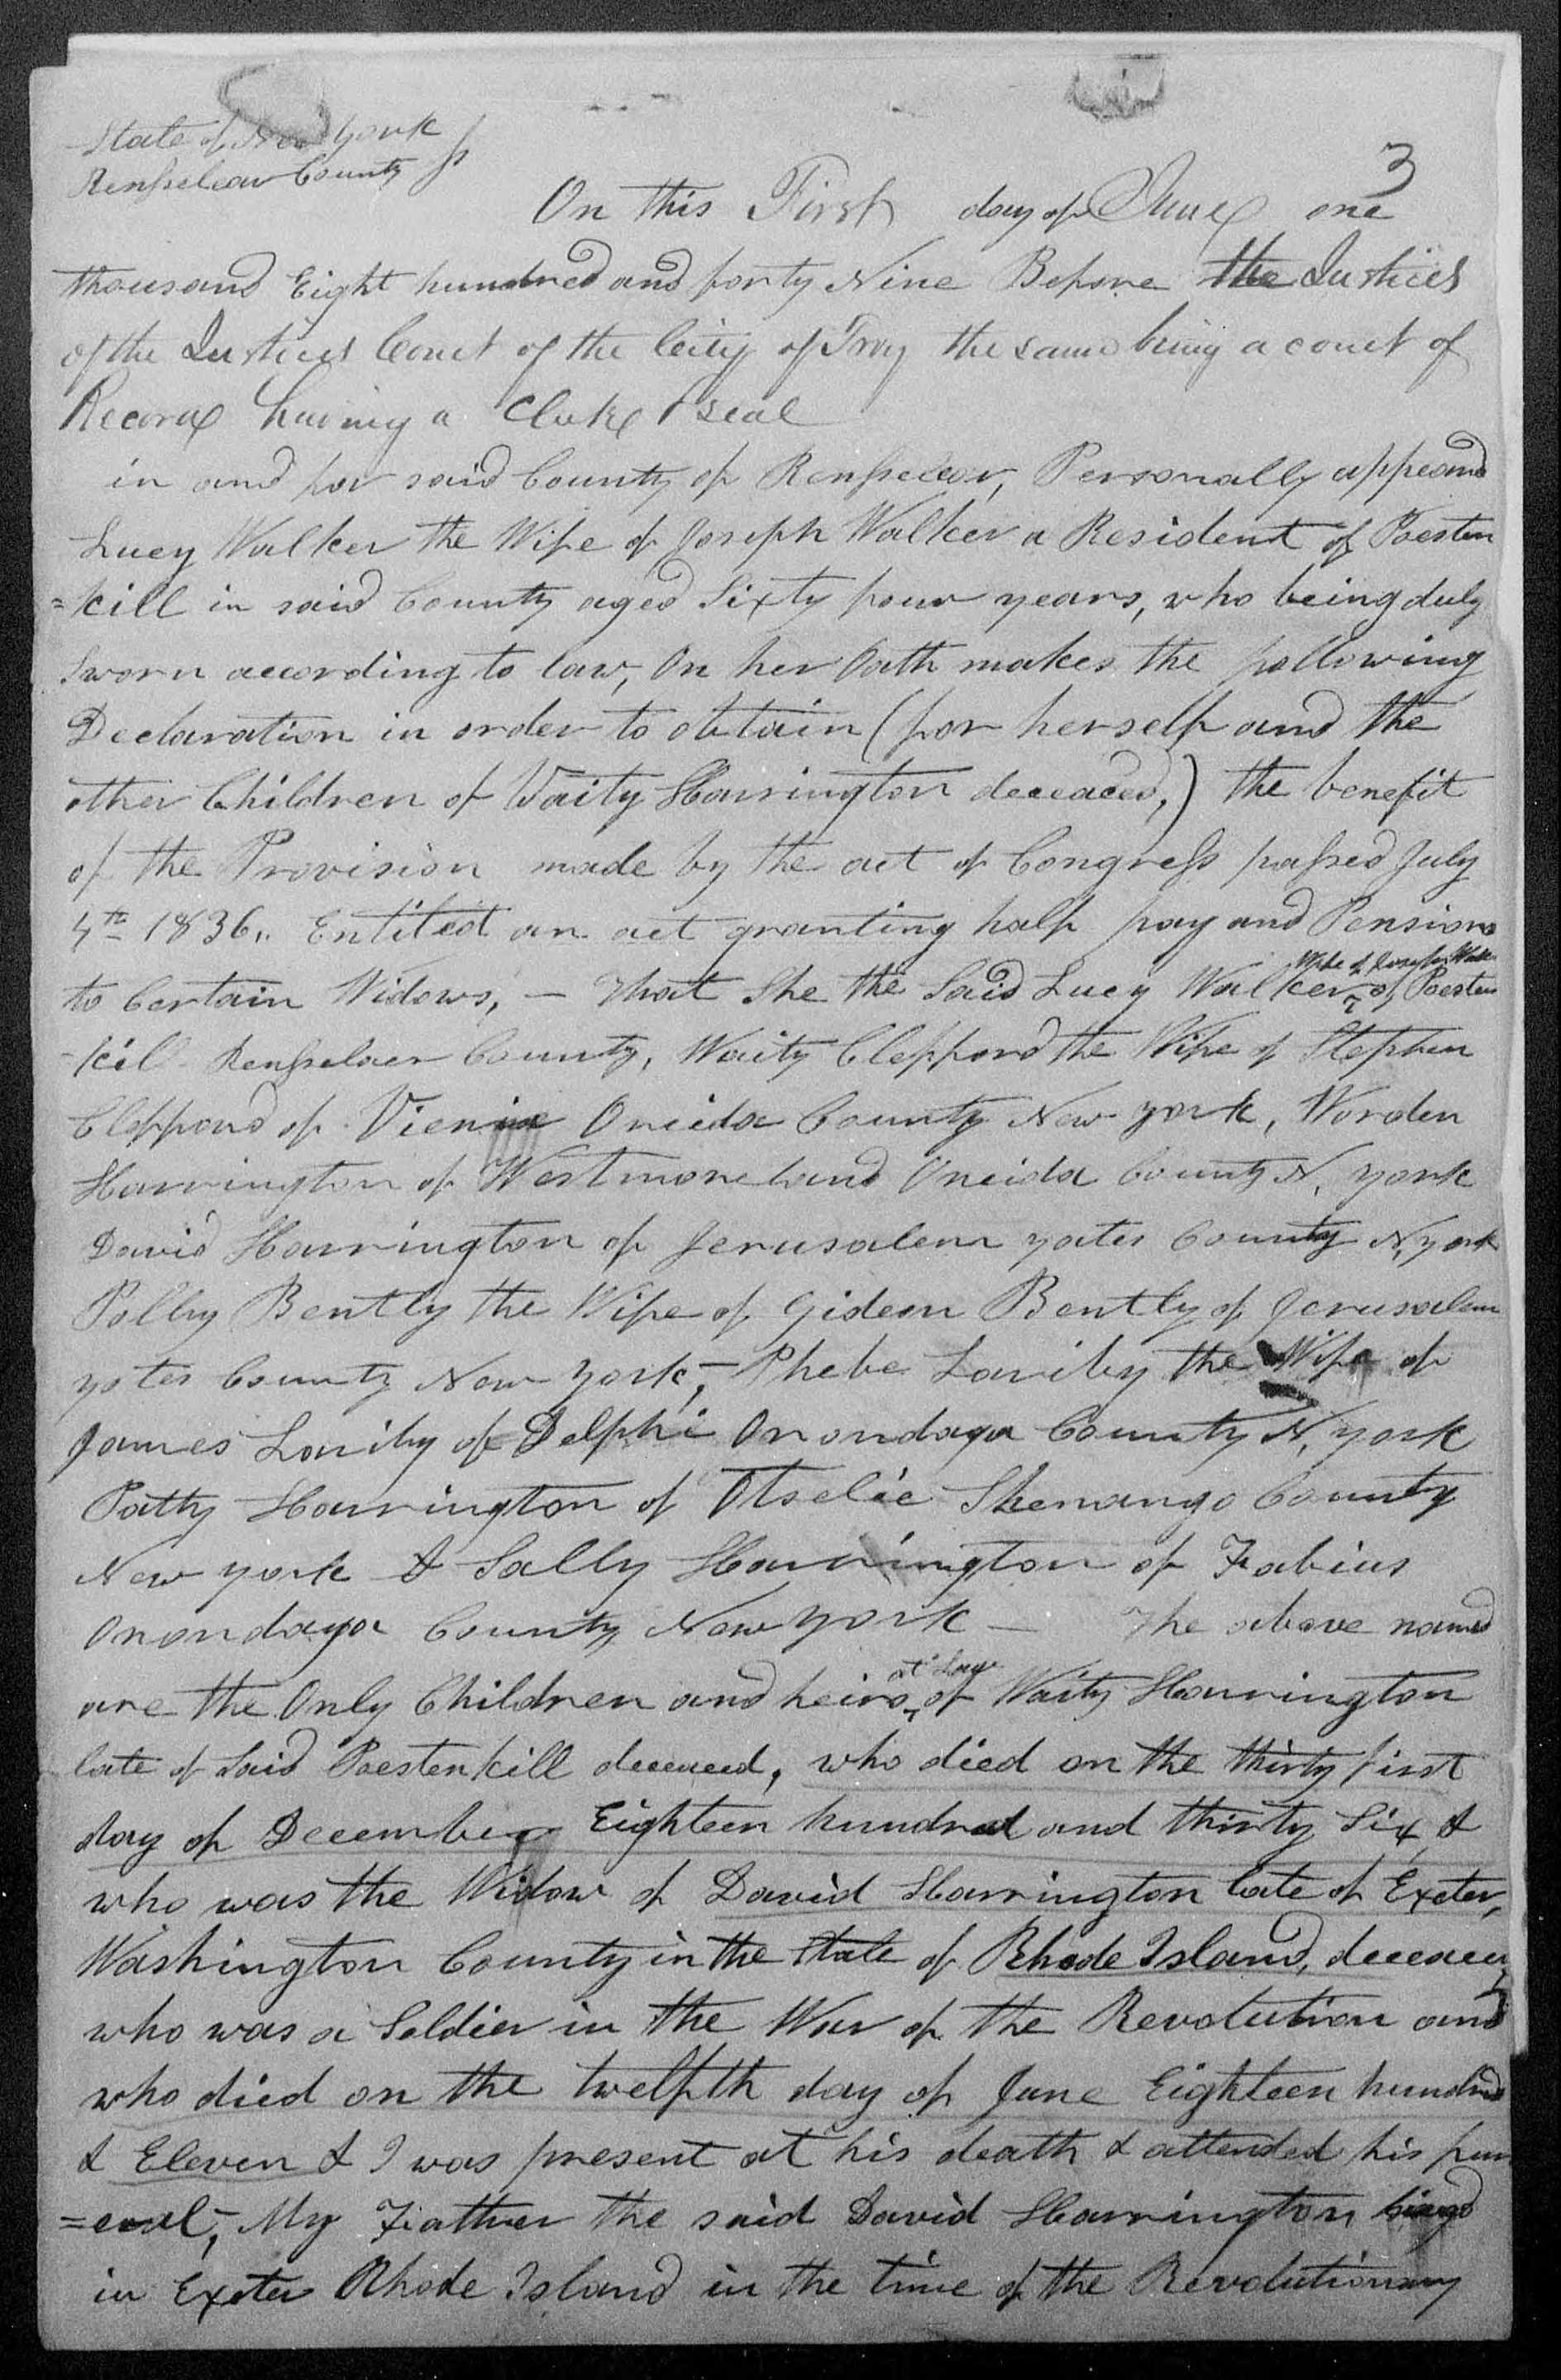 State of New York
Rensselear County ss
3
On this First day of June one
thousand Eight hundred and forty Nine Before the Justices
of the Justices Court of the City of Troy the same being a court of
Record having a Clerk & seal
in and for said County of Rensselear, Personally appeared
Lucy Walker the Wife of Joseph Walker a Resident of Poesten
=kill in said County aged Sixty four years, who being duly
Sworn according to law, On her Oath makes the following
Declaration in order to obtain (for herself and the
other Children of Waity Harrington deceaced,) the benefit
of the Provision made by the act of Congress passed July
4th 1836,. Entitled an act granting half pay and Pensions
Wife of Joseph Walker
to Certain Widows, — That She the Said Lucy Walker, of Poesten
-kill Rensselaer County, Waity Clefford the Wife of Stephen
Clefford of Vienna Oneida County New York, Worden
Harrington of Westmoreland Oneida County N, York
David Harrington of Jerusalem yates County N, york
Polly Bently the Wife of Gideon Bently of Jerusalem
yates County New York, — Phebe the Wife of
James of Delphi Onondaga County N, York
Patty Harrington of Otselic Shenango County
New york & Sally Harrington of Fabius
Onondaga County New York — The above named
at Law
are the Only Children and heirs, of Waity Harrington
late of Said Poestenkill deceaced, who died on the thirty first
day of December Eighteen hundred and thirty Six, &
who was the Widow of David Harrington late of Exeter,
Washington County in the State of Rhode Island, deceaced,
who was a Soldier in the War of the Revolution and
who died on the twelfth day of June Eighteen hundred
& Eleven & I was present at his death & attended his fun
=eral, My Father the said David Harrington
in Exeter Rhode Island in the time of the Revolutionary